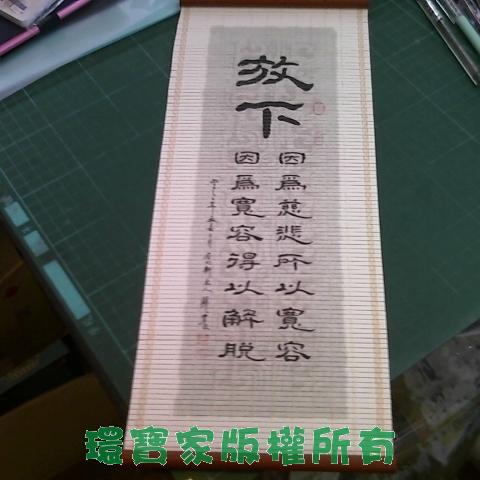 放下
因爲慈悲所以寬容
因爲寬容得以解脫
環寶家版權所有